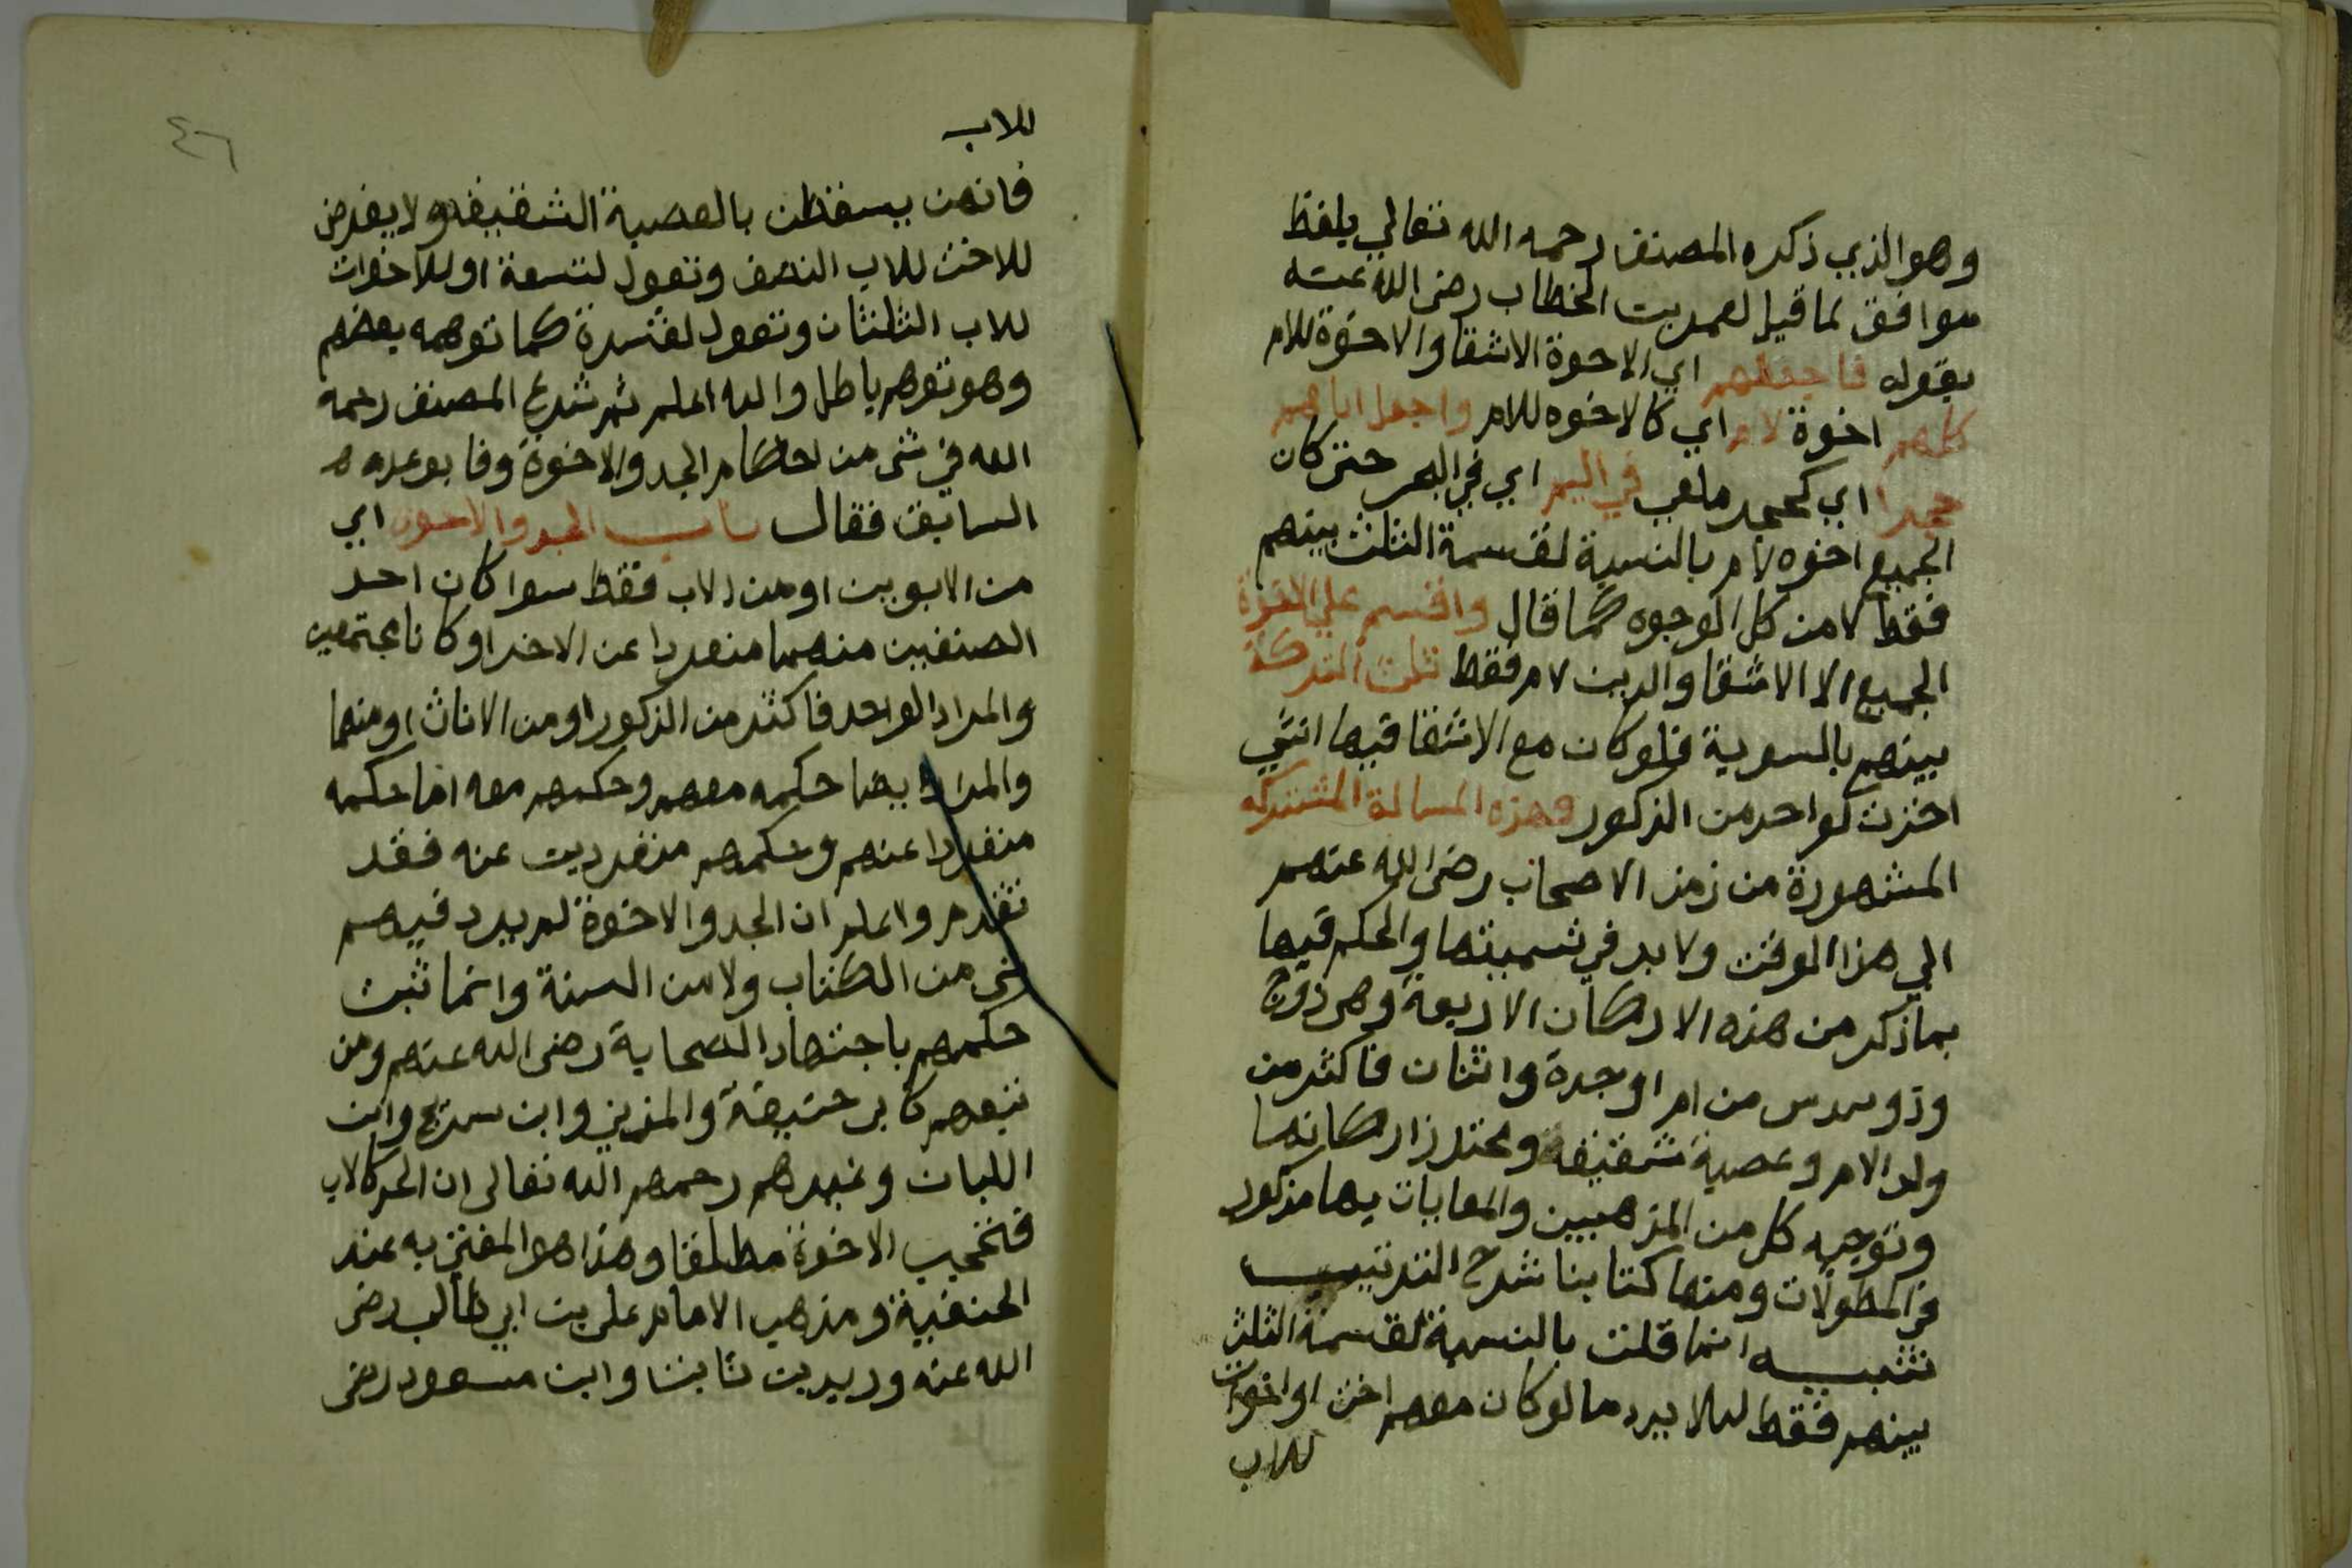 وهو الذي ذكره المصنف رحمه الله تعالي بلفظ
موافق لما قيل لعمر بن الخطاب رضى الله عنه
بقوله فاجعلهم اي الاخوة الاشقا والاخوة للام
كلهم اخوة لام اي كالاخوه للام واجعل اباهم
حجرا اي كحجر ملقي في اليم اي في البحر حتى كان
الجميع اخوه لام بالنسبة لقسمة الثلث بينهم
فقط لا من كل الوجوه كما قال واقسم على الاخوة
الجميع الا الاشقا والدين لام فقط ثلث التركة
بينهم بالسوية فلو كان مع الاشقا فيها انثي
اخذت كواحد من الذكور وهذه المسالة المشتركه
المشهورة من زمن الاصحاب رضى الله عنهم
الي هذا الوقت ولا بد في تسميتها والحكم فيها
بما ذكر من هذه الاركان الاربعة وهى زوج
وذو سدس من ام او جدة واثنان فاكثر من
ولد الام وعصبة شقيقه ومحترز اركانها
وتوجيه كل من المذهبين والمعايات بها مذكور
في المطولات ومنها كتابنا شرح الترتيب
تنبيه انما قلت بالنسبة لقسمة الثلث
بينهم فقط ليلا يرد ما لو كان معهم اخت او اخوات
للاب
٤٦
للاب
فانهن يسقطن بالعصبة الشقيقه ولا يفرض
للاخت للاب النصف وتعول لتسعة او للاخوات
للاب الثلثان وتعول لعشرة كما توهمه بعضهم
وهو توهم باطل والله اعلم ثم شرع المصنف رحمه
الله في شى من احكام الجد والاخوة وفا بوعده
السابق فقال باب الجد والاخوة اي
من الابوين او من الاب فقط سوا كان احد
الصنفين منهما منفردا عن الاخر او كانا مجتمعين
والمراد الواحد فاكثر من الذكور او من الاناث او منهما
والمراد ايضا حكمه معهم وحكمهم معه اما حكمه
منفردا عنهم وحكمهم منفردين عنه فقد
تقدم واعلم ان الجد والاخوة لم يرد فيهم
شى من الكتاب ولا من السنة وانما ثبت
حكمهم باجتهاد الصحابة رضى الله عنهم ومن
تبعهم كابى حنيفة والمزني وابن سريج وابن
اللبان وغيرهم رحمهم الله تعالى ان الجد كالاب
فتحجب الاخوة مطلقا وهذا هو المفتى به عند
الحنفية ومذهب الامام على بن ابي طالب رضى
الله عنه وزيد بن ثابت وابن مسعود رضى